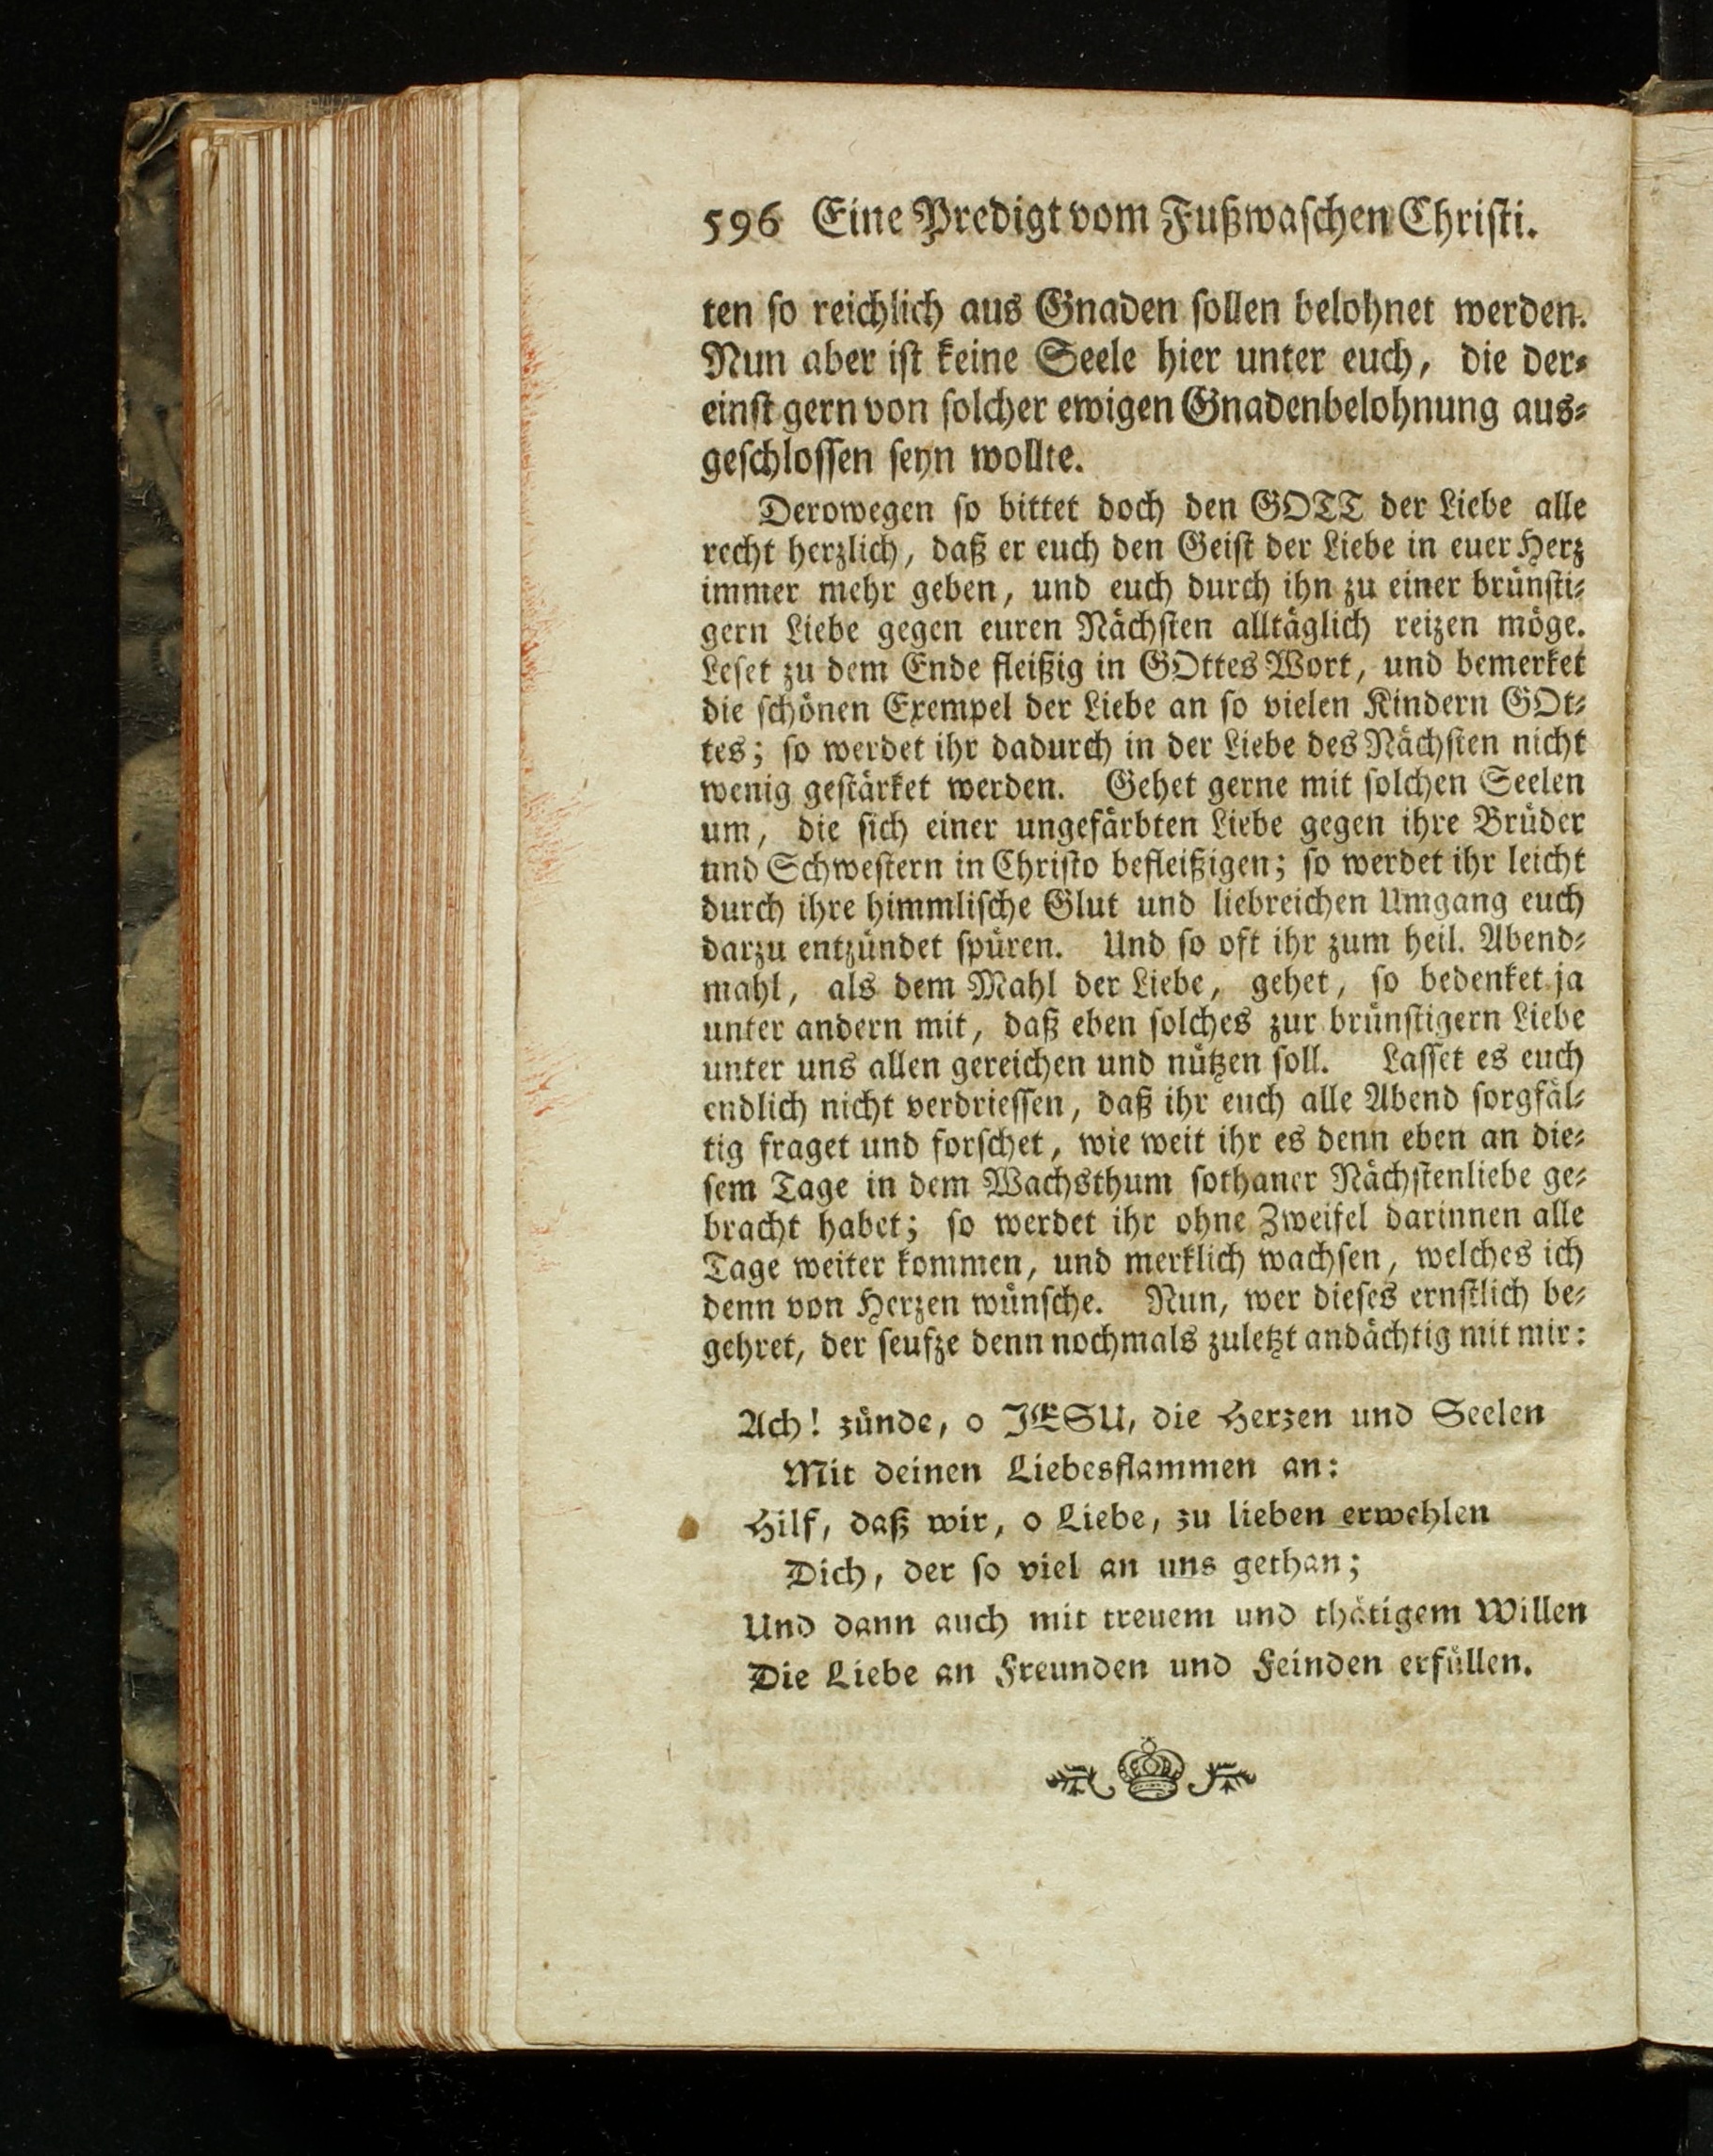 596 Eine Predigt vom Fußwaschen Christi.
ten so reichlich aus Gnaden sollen belohnet werden.
Nun aber ist keine Seele hier unter euch, die der⸗
einst gern von solcher ewigen Gnadenbelohnung aus⸗
geschlossen seyn wollte.
Derowegen so bittet doch den GOTT der Liebe alle
recht herzlich, daß er euch den Geist der Liebe in euer Herz
immer mehr geben, und euch durch ihn zu einer brünsti⸗
gern Liebe gegen euren Nächsten alltäglich reizen möge.
Leset zu dem Ende fleißig in GOttes Wort, und bemerket
die schönen Exempel der Liebe an so vielen Kindern GOt⸗
tes; so werdet ihr dadurch in der Liebe des Nächsten nicht
wenig gestärket werden. Gehet gerne mit solchen Seelen
um, die sich einer ungefärbten Liebe gegen ihre Brüder
und Schwestern in Christo befleißigen; so werdet ihr leicht
durch ihre himmlische Glut und liebreichen Umgang euch
darzu entzündet spüren. Und so oft ihr zum heil. Abend⸗
mahl, als dem Mahl der Liebe, gehet, so bedenket ja
unter andern mit, daß eben solches zur brünstigern Liebe
unter uns allen gereichen und nützen soll. Lasset es euch
endlich nicht verdriessen, daß ihr euch alle Abend sorgfäl⸗
tig fraget und forschet, wie weit ihr es denn eben an die⸗
sem Tage in dem Wachsthum sothaner Nächstenliebe ge⸗
bracht habet; so werdet ihr ohne Zweifel darinnen alle
Tage weiter kommen, und merklich wachsen, welches ich
denn von Herzen wünsche. Nun, wer dieses ernstlich be⸗
gehret, der seufze denn nochmals zuletzt andächtig mit mir:
Ach! zünde, o JESU, die Herzen und Seelen
Mit deinen Liebesflammen an:
Hilf, daß wir, o Liebe, zu lieben erwehlen
Dich, der so viel an uns gethan;
Und dann auch mit treuem und thätigem Willen
Die Liebe an Freunden und Feinden erfüllen.